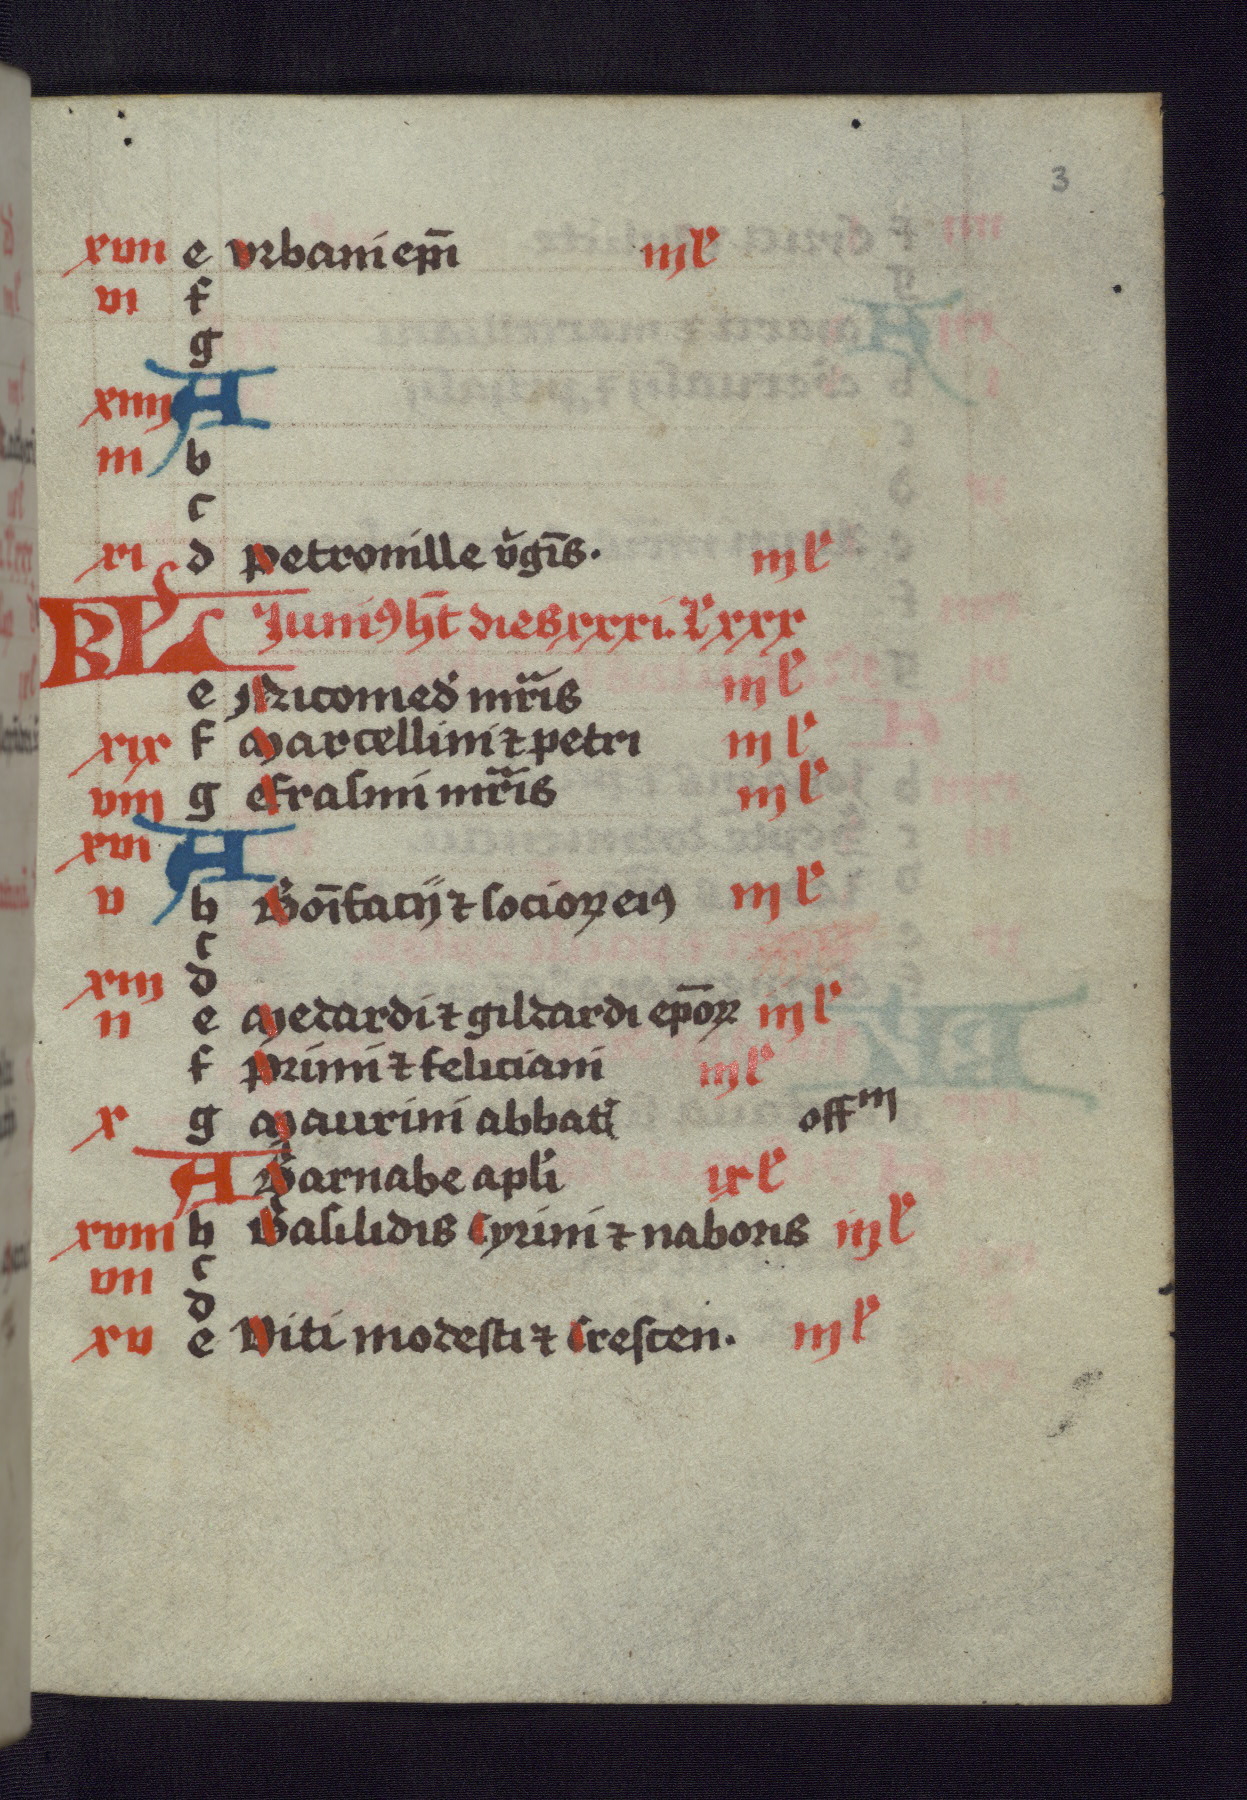 3
xvii e vrbani ep̄i iij l
vi f
g
xiiij A
iii b
c
xi d petronille v̄gīs. iij l
KL Juni9 h̄t dies xxxi. l xxx
e Nicomed mr̄is iij l
xix f Marcellini ⁊ petri iij l
viij g Erasmi mr̄is iij l
xvi A
v b Bonīfacij ⁊ socioꝝ ei9 iij l
c
xiij d
ii e Medardi ⁊ gildardi ep̄oꝝ iij l
f primi ⁊ feliciani iij l
x g Maurini abbatis off m
A Barnabe apl'i ix l
xviii b Basilidis Cyrini ⁊ naboris iij l
vii c
d
xv e Viti modesti ⁊ Crescen. iij l